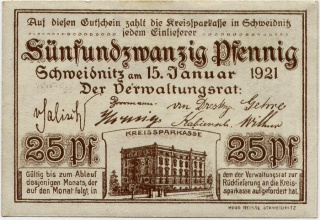 Auf diesen Gutschein zahlt die Kreissparkasse in Schweidnitz
jedem Einlieferer
Fünfundzwanzig Pfennig
Schweidnitz am 15. Januar 1921
Der Verwaltungsrat:
KREISSPARKASSE
25 Pf.
25 Pf.
Gültig bis zum Ablauf
desjenigen Monats, der
auf den Monat folgt, in
dem der Verwaltungsrat zur
Rücklieferung an die Kreis-
sparkasse aufgefordert hat.